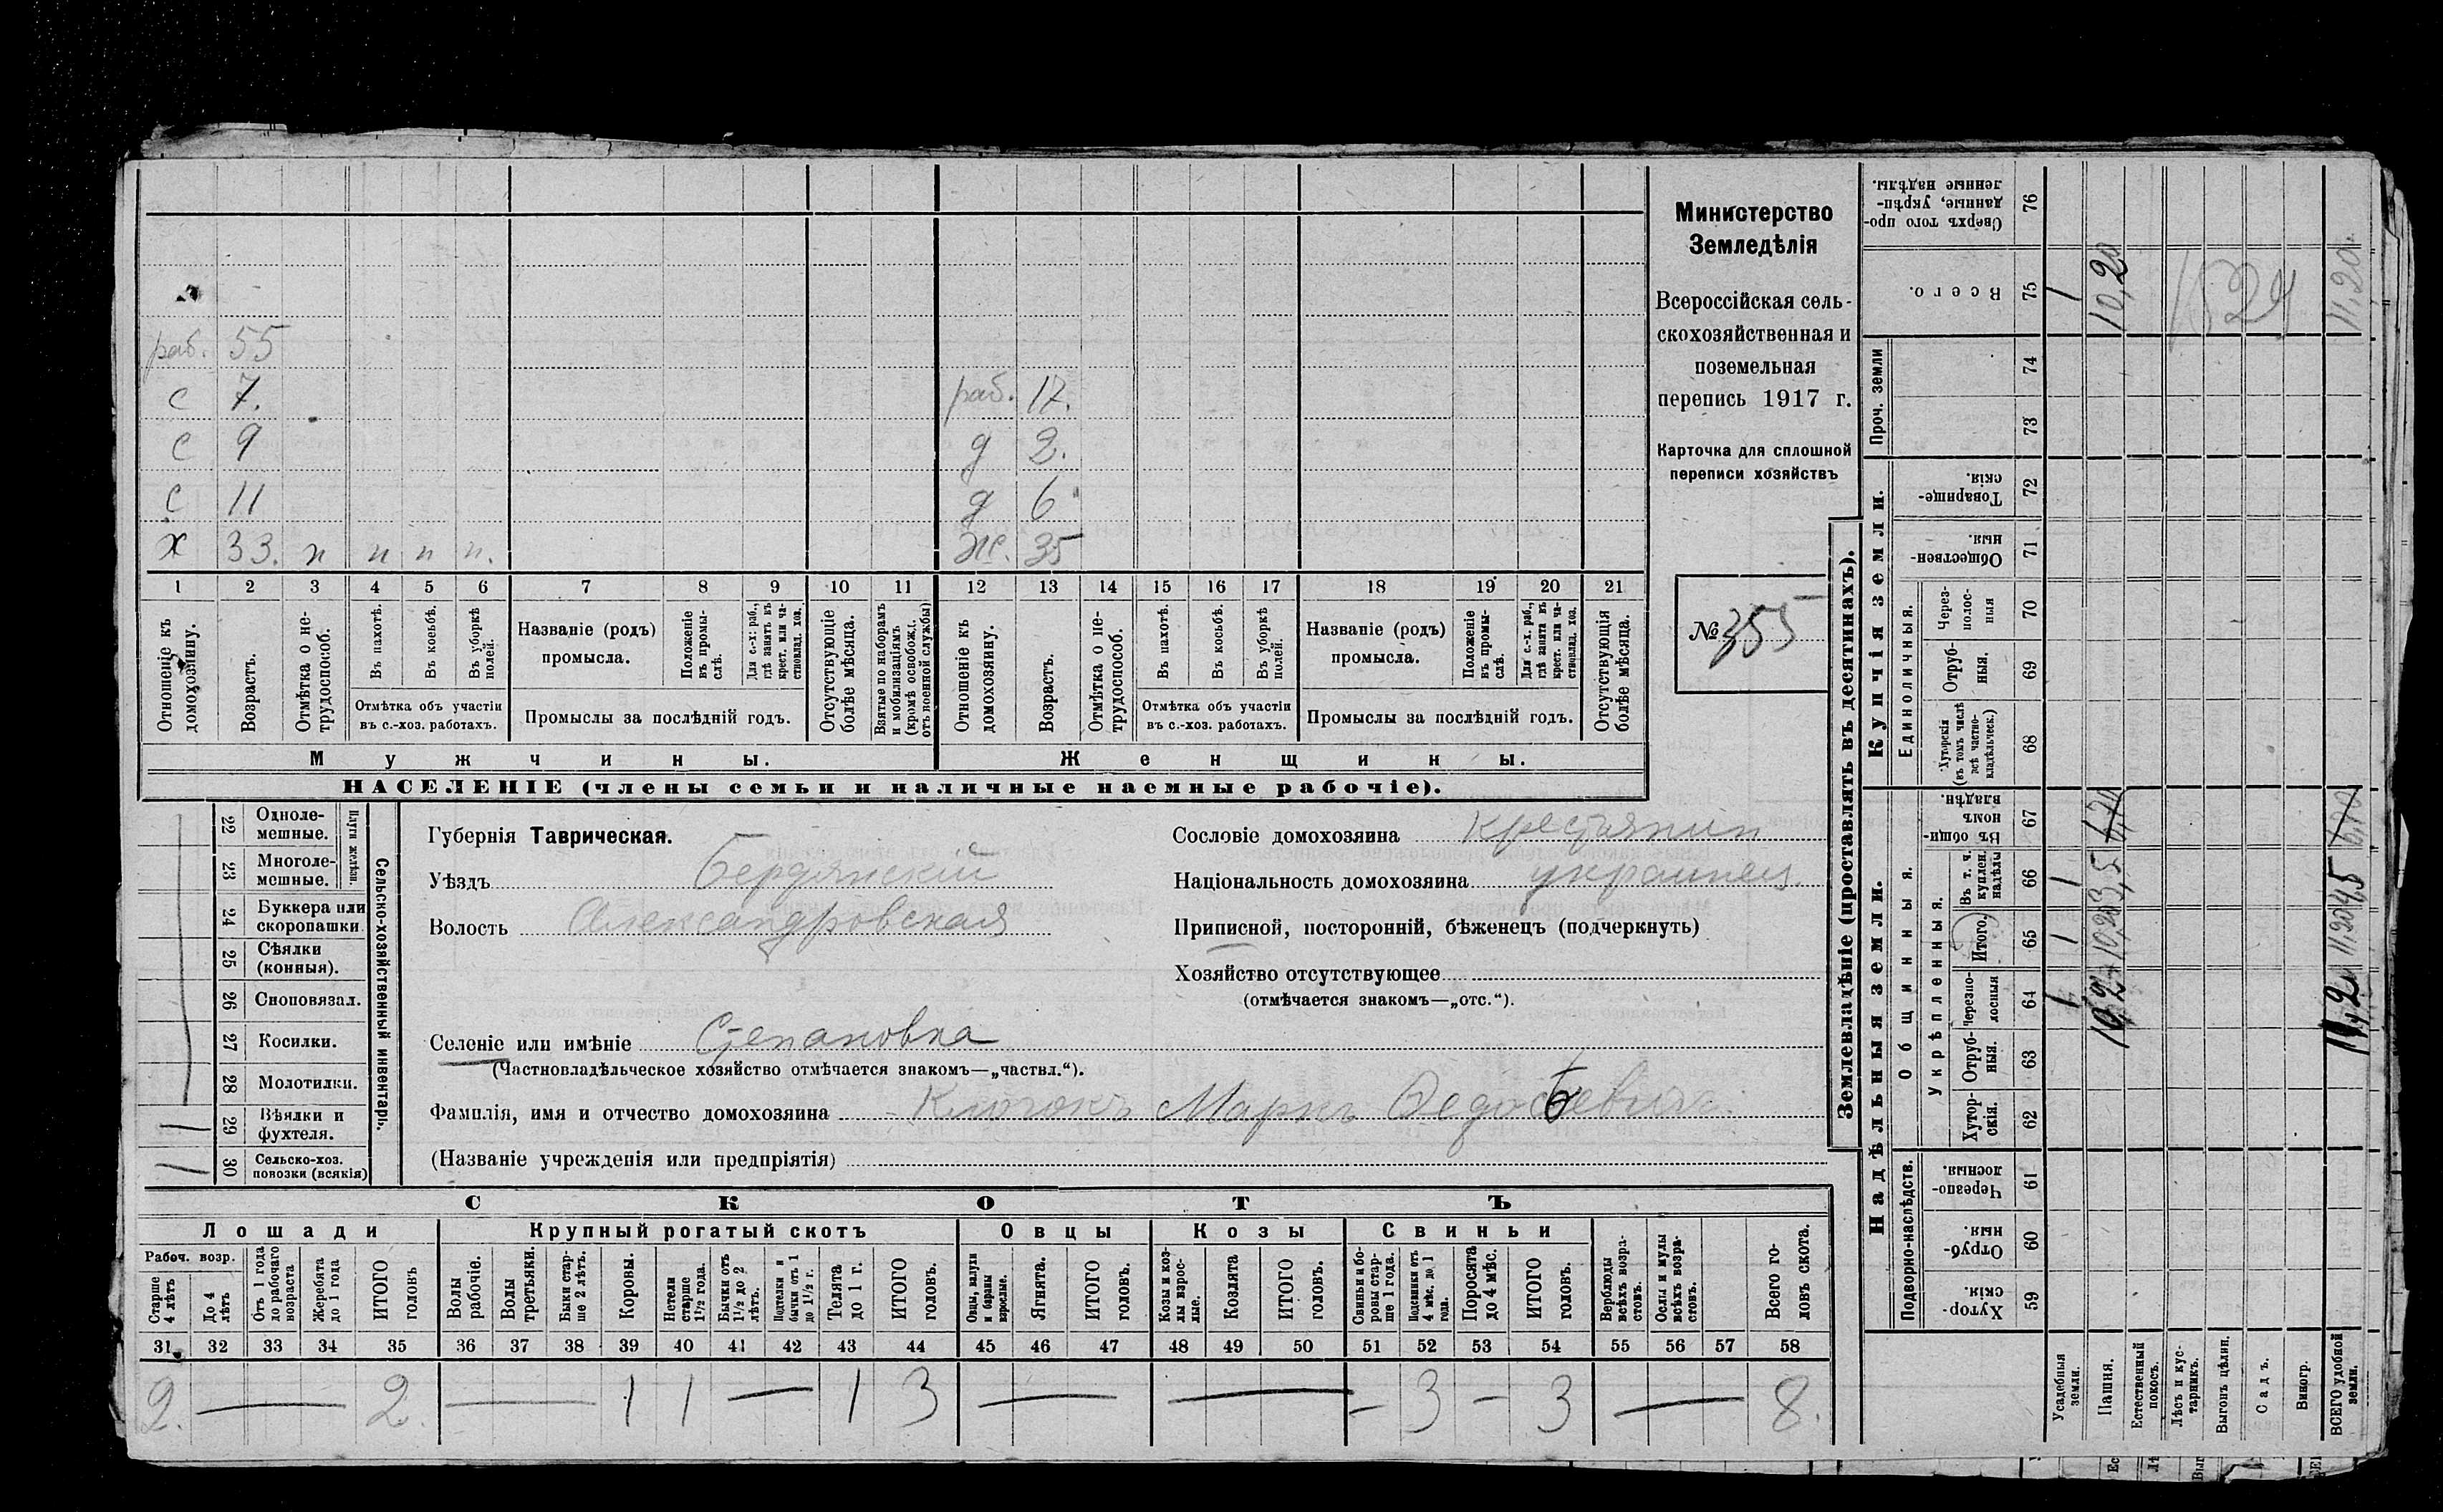 раб. 55
с 7. раб. 17.
с 9 д 2.
с 11 д 6
х 33. п п п п. ж. 35
1 2 3 4 5 6 7 8 9 10 11 12 13 14 15 16 17 18 19 20 21
Отношеніе къ домохозяину.
Возрастъ.
Отмѣтка о нетрудоспособ.
Въ пахотѣ.
Въ косьбѣ.
Въ уборкѣ полей.
Отмѣтка объ участіи
въ с.-хоз. работахъ.
Названіе (родъ)
промысла.
Положеніе въ промыслѣ.
Для с.-х. раб., гдѣ занятъ въ крест. или частновлад. хоз.
Промыслы за послѣдній годъ.
Отсутствующіе болѣе мѣсяца.
Взятые по наборамъ и мобилизаціямъ (кромѣ освобожд. отъ военной службы)
Отношеніе къ домохозяину.
Возрастъ.
Отмѣтка о нетрудоспособ.
Въ пахотѣ.
Въ косьбѣ.
Въ уборкѣ полей.
Отмѣтка объ участіи
въ с.-хоз. работахъ.
Названіе (родъ)
промысла.
Положеніе въ промыслѣ.
Для с.-х. раб., гдѣ занята въ крест. или частновлад. хоз.
Промыслы за послѣдній годъ.
Отсутствующія болѣе мѣсяца.
Мужчины. Женщины.
НАСЕЛЕНІЕ (члены семьи и наличные наемные рабочіе).
Министерство
Земледѣлія
Всероссійская сель-
скохозяйственная и
поземельная
перепись 1917 г.
Карточка для сплошной
переписи хозяйствъ
№ 355
Сельско-хозяйственный инвентарь.
Плуги желѣзн.
22 Однолемешные.
23 Многолемешные.
24 Буккера или скоропашки
25 Сѣялки (конныя).
26 Сноповязал.
27 Косилки.
28 Молотилки.
29 Вѣялки и фухтеля. 1
30 Сельско-хоз. повозки (всякія) 1
Губернія Таврическая.
Уѣздъ Бердянскій
Волость Александровская
Сословіе домохозяина крестьянин
Національность домохозяина украинец.
Приписной, посторонній, бѣженецъ (подчеркнуть)
Хозяйство отсутствующее
(отмѣчается знакомъ—„отс.“).
Селеніе или имѣніе Степановка
(Частновладѣльческое хозяйство отмѣчается знакомъ—„частвл.“).
Фамилія, имя и отчество домохозяина Клочокъ Маркъ
(Названіе учрежденія или предпріятія)
СКОТЪ
Лошади Крупный рогатый скотъ Овцы Козы Свиньи
Рабоч. возр.
Старше 4 лѣтъ
До 4 лѣтъ
Отъ 1 года до рабочаго возраста
Жеребята до 1 года
ИТОГО головъ
Волы рабочіе.
Волы третьяки.
Быки старше 2 лѣтъ.
Коровы.
Нетели старше 1½ года.
Бычки отъ 1½ до 2 лѣтъ.
Подтелки и бычки отъ 1 до 1½ г.
Телята до 1 г.
ИТОГО головъ.
Овцы, валухи и бараны взрослые.
Ягнята.
ИТОГО головъ.
Козы и козлы взрослые.
Козлята
ИТОГО головъ.
Свиньи и боровы старше 1 года.
Подсвинки отъ 4 мѣс. до 1 года.
Поросята до 4 мѣс.
ИТОГО головъ.
Верблюды всѣхъ возрастовъ.
Ослы и мулы всѣхъ возрастовъ.
Всего головъ скота.
31 32 33 34 35 36 37 38 39 40 41 42 43 44 45 46 47 48 49 50 51 52 53 54 55 56 57 58
2. — 2. — 1 1 — 1 3 — — — 3 — 3 — 8.
Землевладѣніе (проставлять въ десятинахъ).
Надѣльныя земли.
Купчія земли.
Проч. земли
Подворно-наслѣдств.
Общинныя.
Укрѣпленныя.
Единоличныя.
Хуторскія 59
Отрубныя. 60
Черезполосныя. 61
Хуторскія. 62
Отрубныя. 63
Черезполосныя 64
Итого. 65
Въ т. ч. куплен. надѣлы 66
Въ общинномъ владѣн. 67
Хуторскія (въ томъ числѣ всѣ частновладѣльческ.) 68
Отрубныя. 69
Черезполосныя 70
Общественныя. 71
Товарищескія. 72
73
74
Всего. 75
Сверхъ того проданные, укрѣпленные надѣлы. 76
Усадебныя земли. 1 1 1 1
Пашня. 10,2 10,20 3,5 10,20
Естественный покосъ.
Лѣсъ и кустарникъ.
Выгонъ цѣлин.
Садъ.
Виногр.
ВСЕГО удобной земли. 11,2 11,20 4,5 11,20.